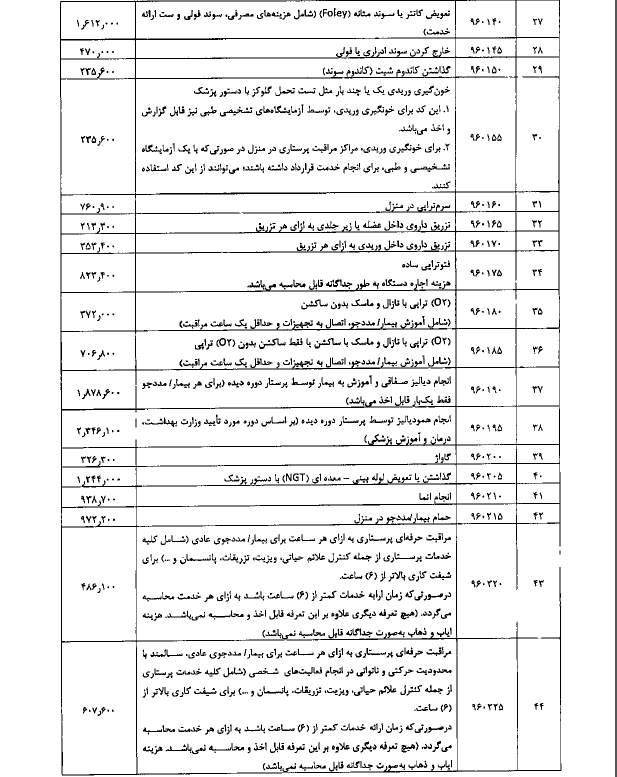 ۲۷ ۹۶۰۱۴۰ تعویض کاتتر یا سوند مثانه (Foley) (شامل هزینه‌های مصرفی، سوند فولی و ست ارائه خدمت) ۱٫۶۱۲٫۰۰۰
۲۸ ۹۶۰۱۴۵ خارج کردن سوند ادراری یا فولی ۴۷۰٫۰۰۰
۲۹ ۹۶۰۱۵۰ گذاشتن کاندوم شیت (کاندوم سوند) ۲۳۵٫۶۰۰
۳۰ ۹۶۰۱۵۵ خون‌گیری وریدی یک یا چند بار مثل تست تحمل گلوکز با دستور پزشک
۱. این کد برای خونگیری وریدی، توسط آزمایشگاه‌های تشخیصی طبی نیز قابل گزارش
و اخذ می‌باشد.
۲. برای خونگیری وریدی، مراکز مراقبت پرستاری در منزل در صورتی‌که با یک آزمایشگاه
تشخیصی و طبی، برای انجام خدمت قرارداد داشته باشند؛ می‌توانند از این کد استفاده
کنند.
۲۳۵٫۶۰۰
۳۱ ۹۶۰۱۶۰ سرم‌تراپی در منزل ۷۶۰٫۹۰۰
۳۲ ۹۶۰۱۶۵ تزریق داروی داخل عضله یا زیر جلدی به ازای هر تزریق ۲۱۳٫۳۰۰
۳۳ ۹۶۰۱۷۰ تزریق داروی داخل وریدی به ازای هر تزریق ۳۵۳٫۴۰۰
۳۴ ۹۶۰۱۷۵ فتوتراپی ساده
هزینه اجاره دستگاه به طور جداگانه قابل محاسبه می‌باشد.
۸۲۳٫۴۰۰
۳۵ ۹۶۰۱۸۰ (O2) تراپی با نازال و ماسک بدون ساکشن
(شامل آموزش بیمار/ مددجو، اتصال به تجهیزات و حداقل یک ساعت مراقبت)
۳۷۲٫۰۰۰
۳۶ ۹۶۰۱۸۵ (O2) تراپی با نازال و ماسک با ساکشن یا فقط ساکشن بدون (O2) تراپی
(شامل آموزش بیمار/ مددجو، اتصال به تجهیزات و حداقل یک ساعت مراقبت)
۷۰۶٫۸۰۰
۳۷ ۹۶۰۱۹۰ انجام دیالیز صفاقی و آموزش به بیمار توسط پرستار دوره دیده (برای هر بیمار/ مددجو
فقط یک‌بار قابل اخذ می‌باشد)
۱٫۸۷۸٫۶۰۰
۳۸ ۹۶۰۱۹۵ انجام همودیالیز توسط پرستار دوره دیده (بر اساس دوره مورد تأیید وزارت بهداشت،
درمان و آموزش پزشکی)
۲٫۳۴۶٫۱۰۰
۳۹ ۹۶۰۲۰۰ گاواژ ۳۲۶٫۳۰۰
۴۰ ۹۶۰۲۰۵ گذاشتن یا تعویض لوله بینی – معده ای (NGT) با دستور پزشک ۱٫۲۴۴٫۰۰۰
۴۱ ۹۶۰۲۱۰ انجام انما ۹۳۸٫۷۰۰
۴۲ ۹۶۰۲۱۵ حمام بیمار/مددجو در منزل ۹۷۲٫۲۰۰
۴۳ ۹۶۰۲۲۰ مراقبت حرفه‌ای پرستاری به ازای هر ساعت برای بیمار/ مددجوی عادی (شامل کلیه
خدمات پرستاری از جمله کنترل علائم حیاتی، ویزیت، تزریقات، پانسمان و ...) برای
شیفت کاری بالاتر از (۶) ساعت.
درصورتی‌که زمان ارایه خدمات کمتر از (۶) ساعت باشد به ازای هر خدمت محاسبه
می‌گردد. (هیچ تعرفه دیگری علاوه بر این تعرفه قابل اخذ و محاسبه نمی‌باشد. هزینه
ایاب و ذهاب به‌صورت جداگانه قابل محاسبه نمی‌باشد)
۴۸۶٫۱۰۰
۴۴ ۹۶۰۲۲۵ مراقبت حرفه‌ای پرستاری به ازای هر ساعت برای بیمار/ مددجوی عادی، سالمند با
محدودیت حرکتی و ناتوانی در انجام فعالیت‌های شخصی (شامل کلیه خدمت پرستاری
از جمله کنترل علائم حیاتی، ویزیت، تزریقات، پانسمان و ...) برای شیفت کاری بالاتر از
(۶) ساعت.
درصورتی‌که زمان ارائه خدمات کمتر از (۶) ساعت باشد به ازای هر خدمت محاسبه
می‌گردد. (هیچ تعرفه دیگری علاوه بر این تعرفه قابل اخذ و محاسبه نمی‌باشد. هزینه
ایاب و ذهاب به‌صورت جداگانه قابل محاسبه نمی‌باشد)
۶۰۷٫۶۰۰